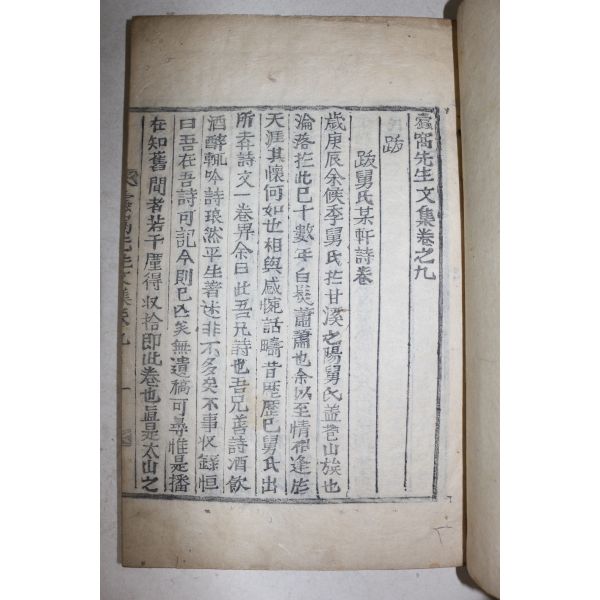 蠹窩先生文集卷之九
跋
跋舅氏某軒詩卷
歲庚辰余候季舅氏於甘溪之陽舅氏盖巷山族也
淪落於此已十數年白髮蕭蕭也余以至情相逢於
天涯其懷何如也相與感惋話疇昔歷歷已舅氏出
所弆詩文一卷畀余曰此吾兄詩也吾兄善詩酒飮
酒酣輒吟詩琅然平生著述非不多矣不事收錄恒
曰吾在吾詩可記今則已亡矣無遺稿可尋惟是播
在知舊間者若干廑得収拾即此卷也豈是太山之
窩先生文集卷九 一